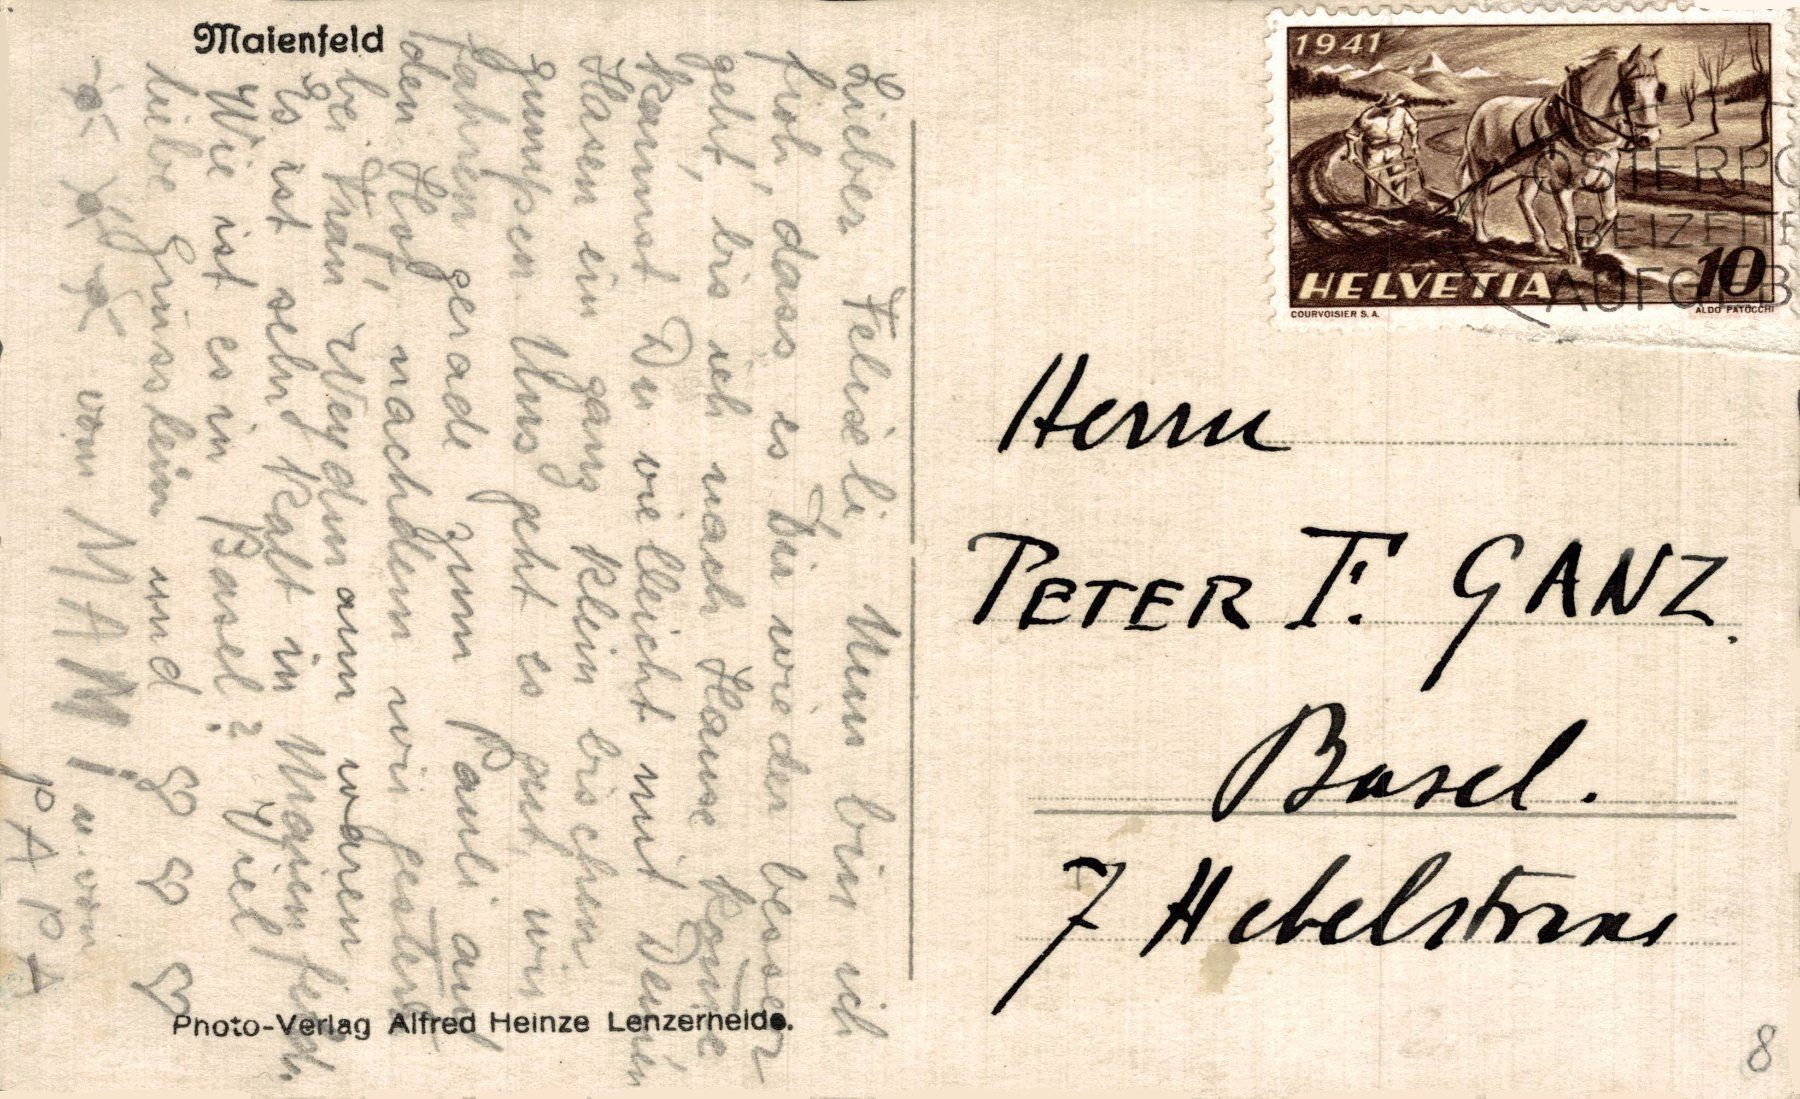 Maienfeld
Lieber Felixeli, Nun bin ich
froh, dass es Dir wieder besser
geht, bis ich nach Hause komme
kannst Du vielleicht mit Deinen
Hasen ein ganz klein bischen
gumpen. Uns geht es gut, wir
fahren gerade zum Pauli auf
den Hof, nachdem wir gestern
bei Frau Weydmann waren
Es ist sehr kalt in Maienfeld.
Wie ist es in Basel? Viel
liebe Grüsslein und
vom MAMI
u. von
PAPA
Photo-Verlag Alfred Heinze Lenzerheide.
1941
HELVETIA
10
COURVOISIER S.A.
ALDO PATOCCHI
OSTERPO
BEIZEITE
AUFGEB
Herrn
PETER F. GANZ.
Basel.
7 Hebelstrasse
8